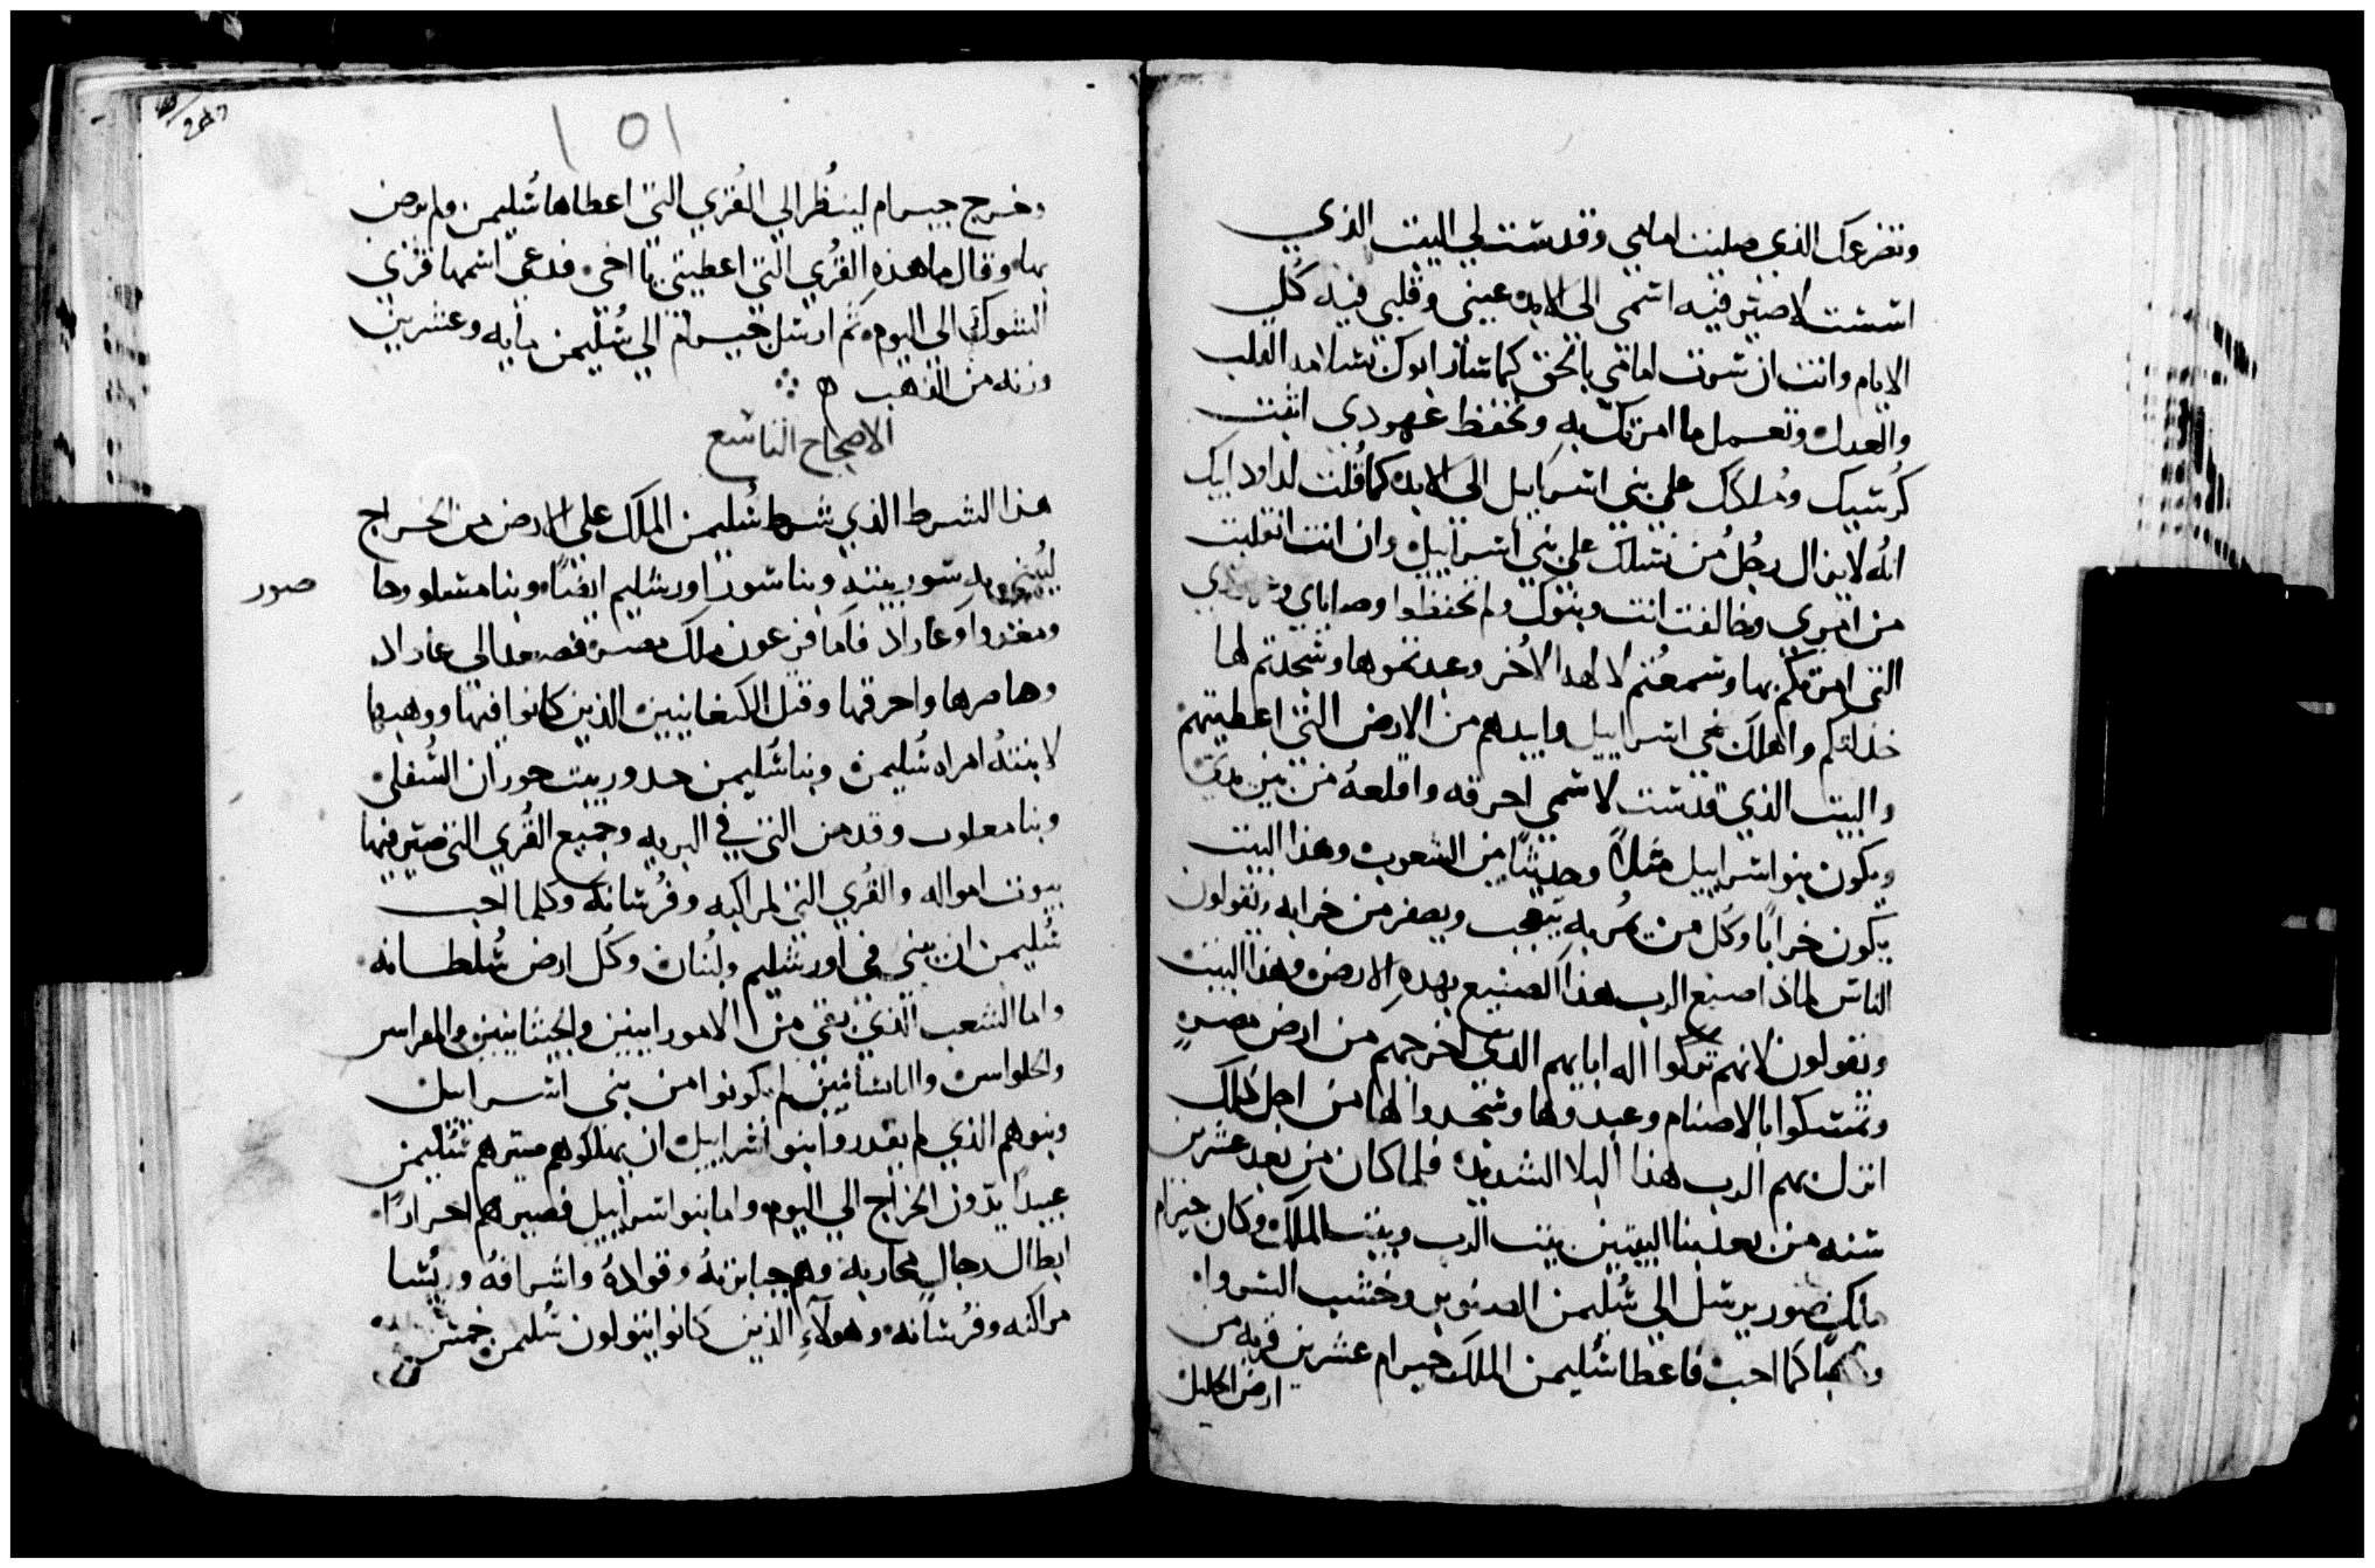 وتضرعك الذي صليت امامي وقدست لي البيت الذي
اسست لاصير فيه اسمي الى الابد عيني وقلبي فيه كل
الايام وانت ان سرت امامي بالحق كما سار ابوك بسلامه القلب
والعدل وتعمل ما امرتك به وتحفظ عهودي اثبت
كرسيك وملكك علي بني اسراييل الى الابد كما قلت لداود ابيك
انه لا يزال رجل من نسلك علي بني اسراييل وان انت انقلبت
من امري وخالفت انت وبنوك ولم تحفظوا وصاياي
التي امرتكم بها وسمعتم لالهه الاخر وعبدتموها وسجدتم لها
خذلتكم واهلك بني اسراييل وابيدهم من الارض التي اعطيتهم
والبيت الذي قدست لاسمي احرقه واقلعه من بين يدي
ويكون بنو اسراييل مثلاً وحديثاً بين الشعوب وهذا البيت
يكون خراباً وكل من يمر به يتعجب ويصفر من خرابه ويقولون
الناس لماذا صنع الرب هذا الصنيع بهذه الارض وهذا البيت
ويقولون لانهم تركوا اله ابايهم الذي اخرجهم من ارض مصر
وتمسكوا بالاصنام وعبدوها وسجدوا لها من اجل ذلك
انزل بهم الرب هذا البلا الشديد فلما كان من بعد عشرين
سنه من بعد بنا البيتين بيت الرب وبيت الملك وكان حيرام
ملك صور يرسل الي سليمن الصنوبر وخشب السرو
كما احب فاعطا سليمن الملك حيرام عشرين قريه من
ارض الجليل
١٥١
وخرج حيرام لينظر الي القري التي اعطاها سليمن ولم يرض
بها وقال ما هذه القري التي اعطيتني يا اخي فدعي اسمها قري
الشوك الي اليوم ثم ارسل حيرام الي سليمن مايه وعشرين
وزنه من الذهب
الاصحاح التاسع
هذا الشرط الذي شرط سليمن الملك علي الارض من الخراج
سور بيته وبنا سور اورشليم ايضاً وبنا
صور
وعازار فاما فرعون ملك مصر فصعد الي عازار
وحاصرها واحرقها وقتل الكنعانيين الذين كانوا فيها ووهبها
لابنته امراه سليمن وبنا سليمن حدور بيت حوران السفلي
وبنا معلوب وقدمن التي في البريه وجميع القري التي صير فيها
بيوت امواله والقري التي لمراكبه وفرسانه وكلما احب
سليمن ان يبني في اورشليم ولبنان وكل ارض سلطانه
واما الشعب الذي بقي من الامورانيين والحيثانيين
لم يكونوا من بني اسراييل
وبنوهم الذي لم يقدروا بنو اسراييل ان يهلكوهم صيرهم سليمن
عبيداً يدون الخراج الي اليوم واما بنو اسراييل فصيرهم احراراً
ابطال رجال محاربه وهم جبابرته وقواده واشرافه وريسا
مراكبه وفرسانه وهولآء الذين كانوا يتولون سليمن